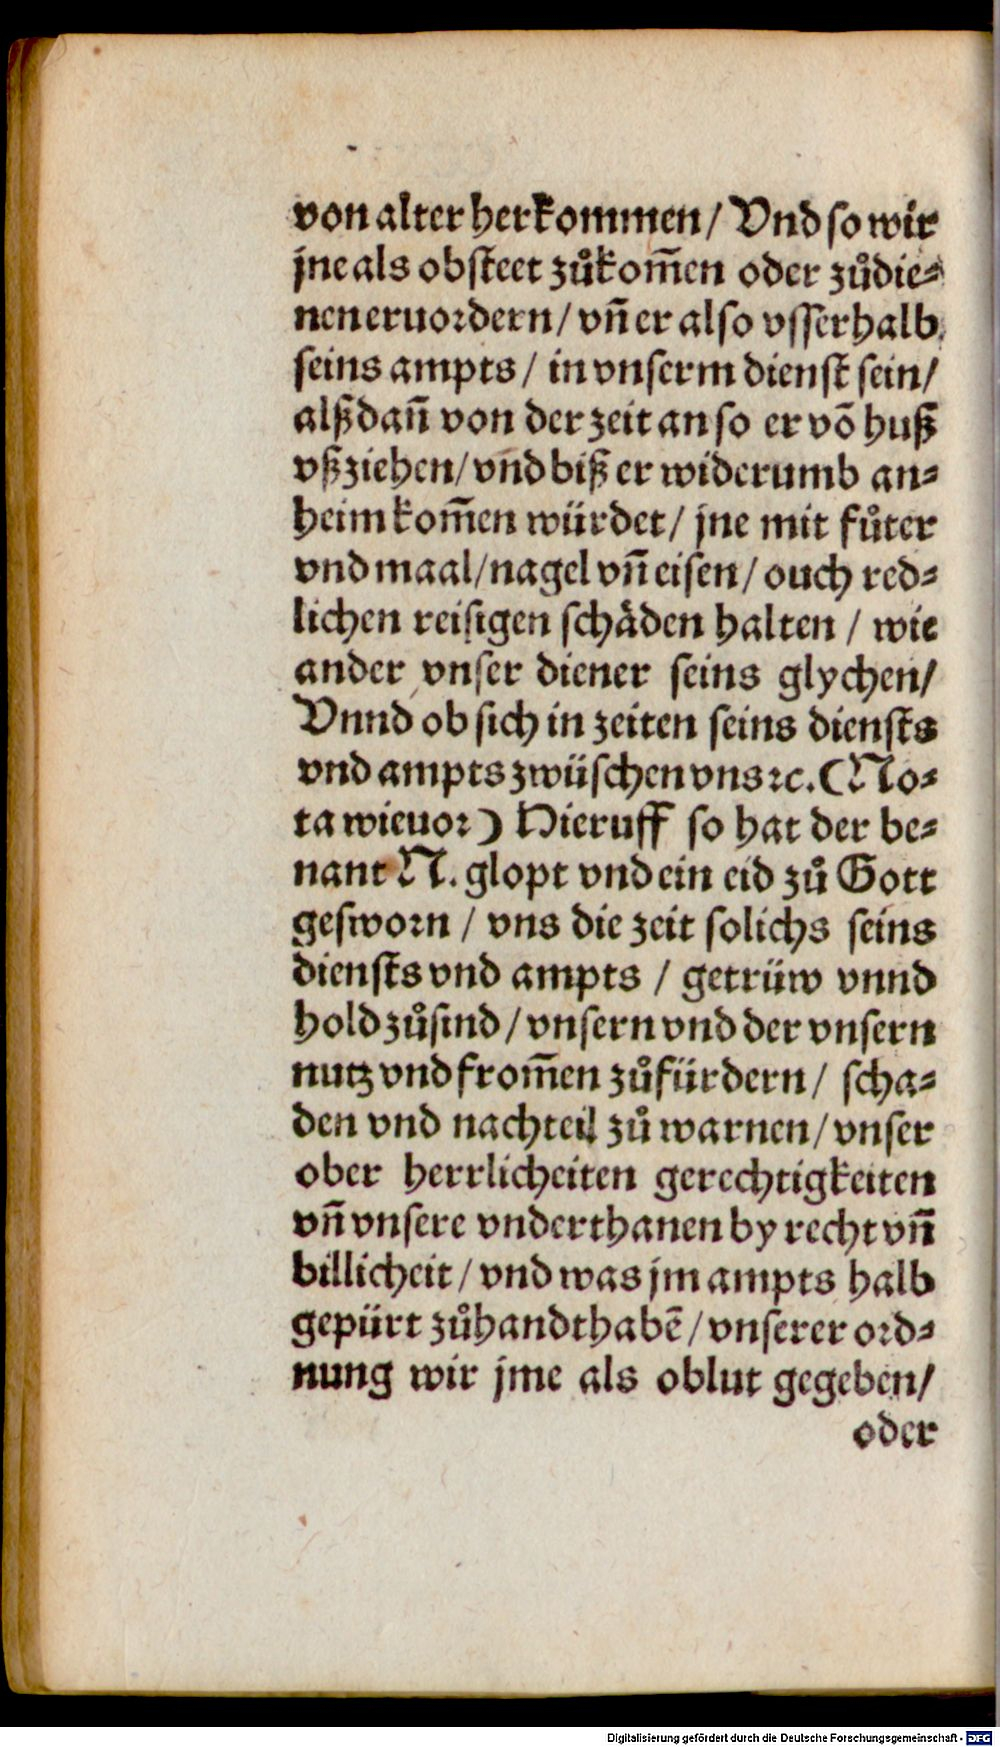 von alter herkommen / Vnd so wir
jne als obsteet zůkom̄en oder zůdie⸗
nen eruordern / vn̄ er also vsserhalb
seins ampts / in vnserm dienst sein /
alßdan̄ von der zeit an so er vō huß
vßziehen / vnd biß er widerumb an⸗
heim kom̄en würdet / jne mit fůter
vnd maal / nagel vn̄ eisen / ouch red⸗
lichen reisigen schäden halten / wie
ander vnser diener seins glychen /
Vnnd ob sich in zeiten seins diensts
vnd ampts zwüschen vns ꝛc. (No⸗
ta wieuor) Hieruff so hat der be⸗
nant N. glopt vnd ein eid zů Gott
gesworn / vns die zeit solichs seins
diensts vnd ampts / getrüw vnnd
hold zůsind / vnsern vnd der vnsern
nutz vnd from̄en zůfürdern / scha⸗
den vnd nachteil zů warnen / vnser
ober herrlicheiten gerechtigkeiten
vn̄ vnsere vnderthanen by recht vn̄
billicheit / vnd was jm ampts halb
gepürt zůhandthabē / vnserer ord⸗
nung wir jme als oblut gegeben /
oder
Digitalisierung gefördert durch die Deutsche Forschungsgemeinschaft - DFG